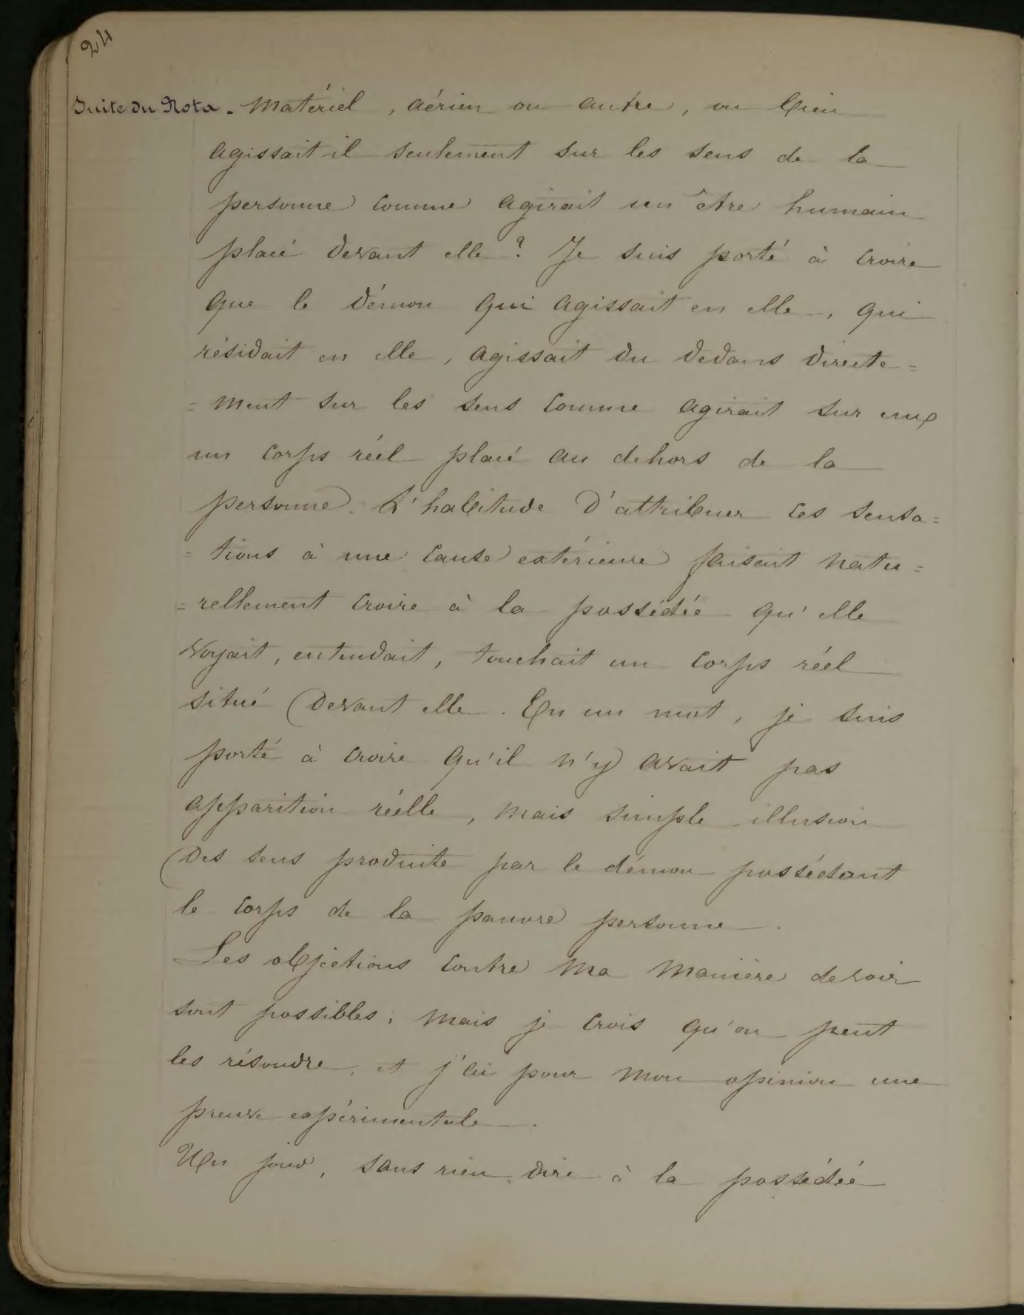 24
Suite du Nota. matériel, aérien ou autre, ou bien
agissait il seulement sur les sens de la
personne comme agirait un être humain
placé devant elle ? Je suis porté à croire
que le démon qui agissait en elle, qui
résidait en elle, agissait du dedans directe=
=ment sur les sens comme agirait sur eux
un corps réel placé au dehors de la
personne. L'habitude d'attribuer ces sensa=
=tions à une cause extérieure faisait natu=
=rellement croire à la possédée qu'elle
voyait, entendait, touchait un corps réel
situé devant elle. En un mot, je suis
porté à croire qu'il n'y avait pas
apparition réelle, mais simple illusion
des sens produite par le démon possédant
le corps de la pauvre personne.
Les objections contre ma manière de voir
sont possibles; mais je crois qu'on peut
les résoudre, et j'ai pour mon opinion une
preuve expérimentale.
Un jour, sans rien dire à la possédée